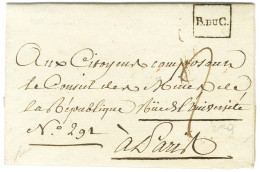 B.DUC.
Aux Citoyens composant
le Conseil des Mines de
la République Rüe de l'Université
N.º 291
à Paris